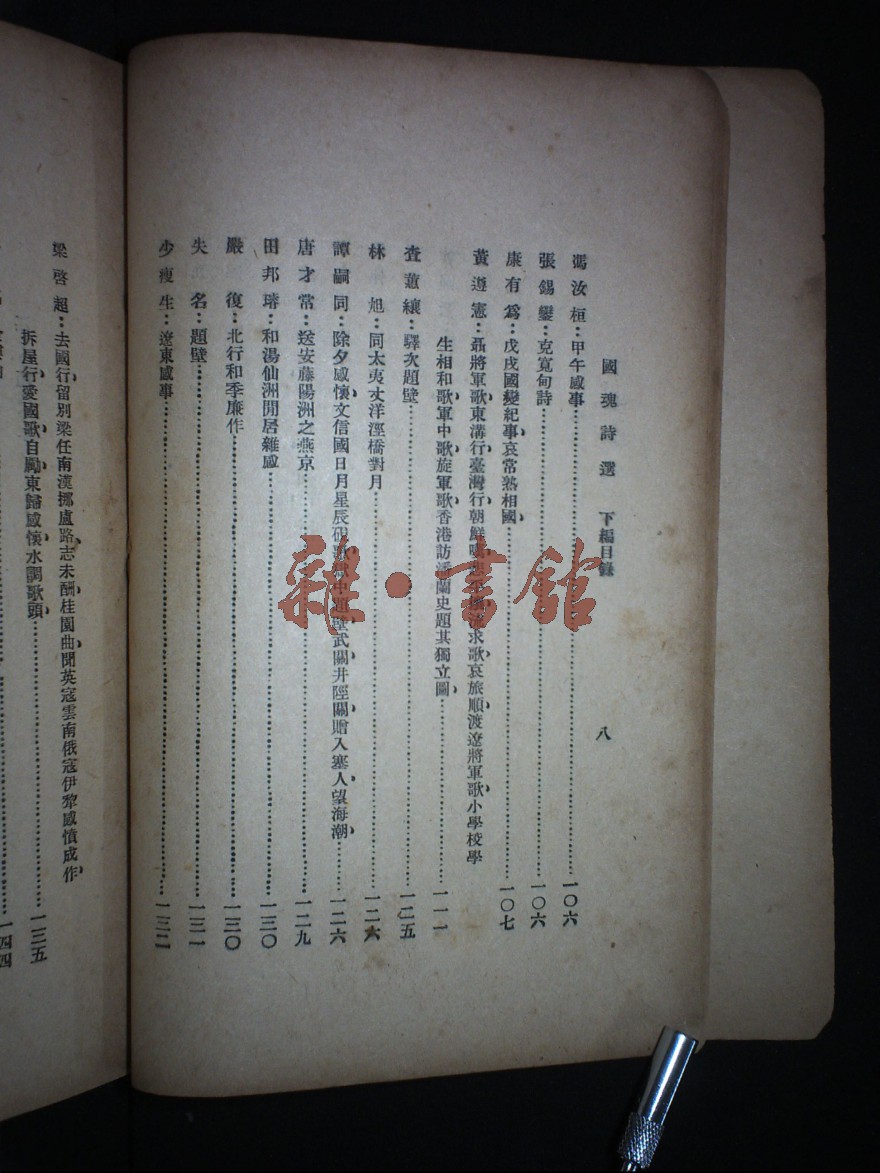 國魂詩選 下編目錄 八
馮汝桓：甲午感事……一〇六
張錫鑾：克寬甸詩……一〇六
康有爲：戊戌國變紀事哀常熟相國……一〇七
黃遵憲：聶將軍歌東溝行臺灣行朝鮮 求歌哀旅順渡遼將軍歌小學校學
生相和歌軍中歌旋軍歌香港訪潘蘭史題其獨立圖……一一一
查蕙纕：驛次題壁……一二五
林旭：同太夷丈洋涇橋對月……一二六
譚嗣同：除夕感懷文信國日月星辰硯歌獄中題壁武關井陘關贈入塞人望海潮……一二六
唐才常：送安藤陽洲之燕京……一二九
田邦璿：和湯仙洲閒居雜感……一三〇
嚴復：北行和季廉作……一三〇
失名：題壁……一三一
少瘦生：遼東感事……一三二
梁啓超：去國行留別梁任南漢挪盧路志未酬桂園曲聞英寇雲南俄寇伊犂感憤成作
拆屋行愛國歌自勵東歸感懷水調歌頭……一三五
一四四
雜·書館